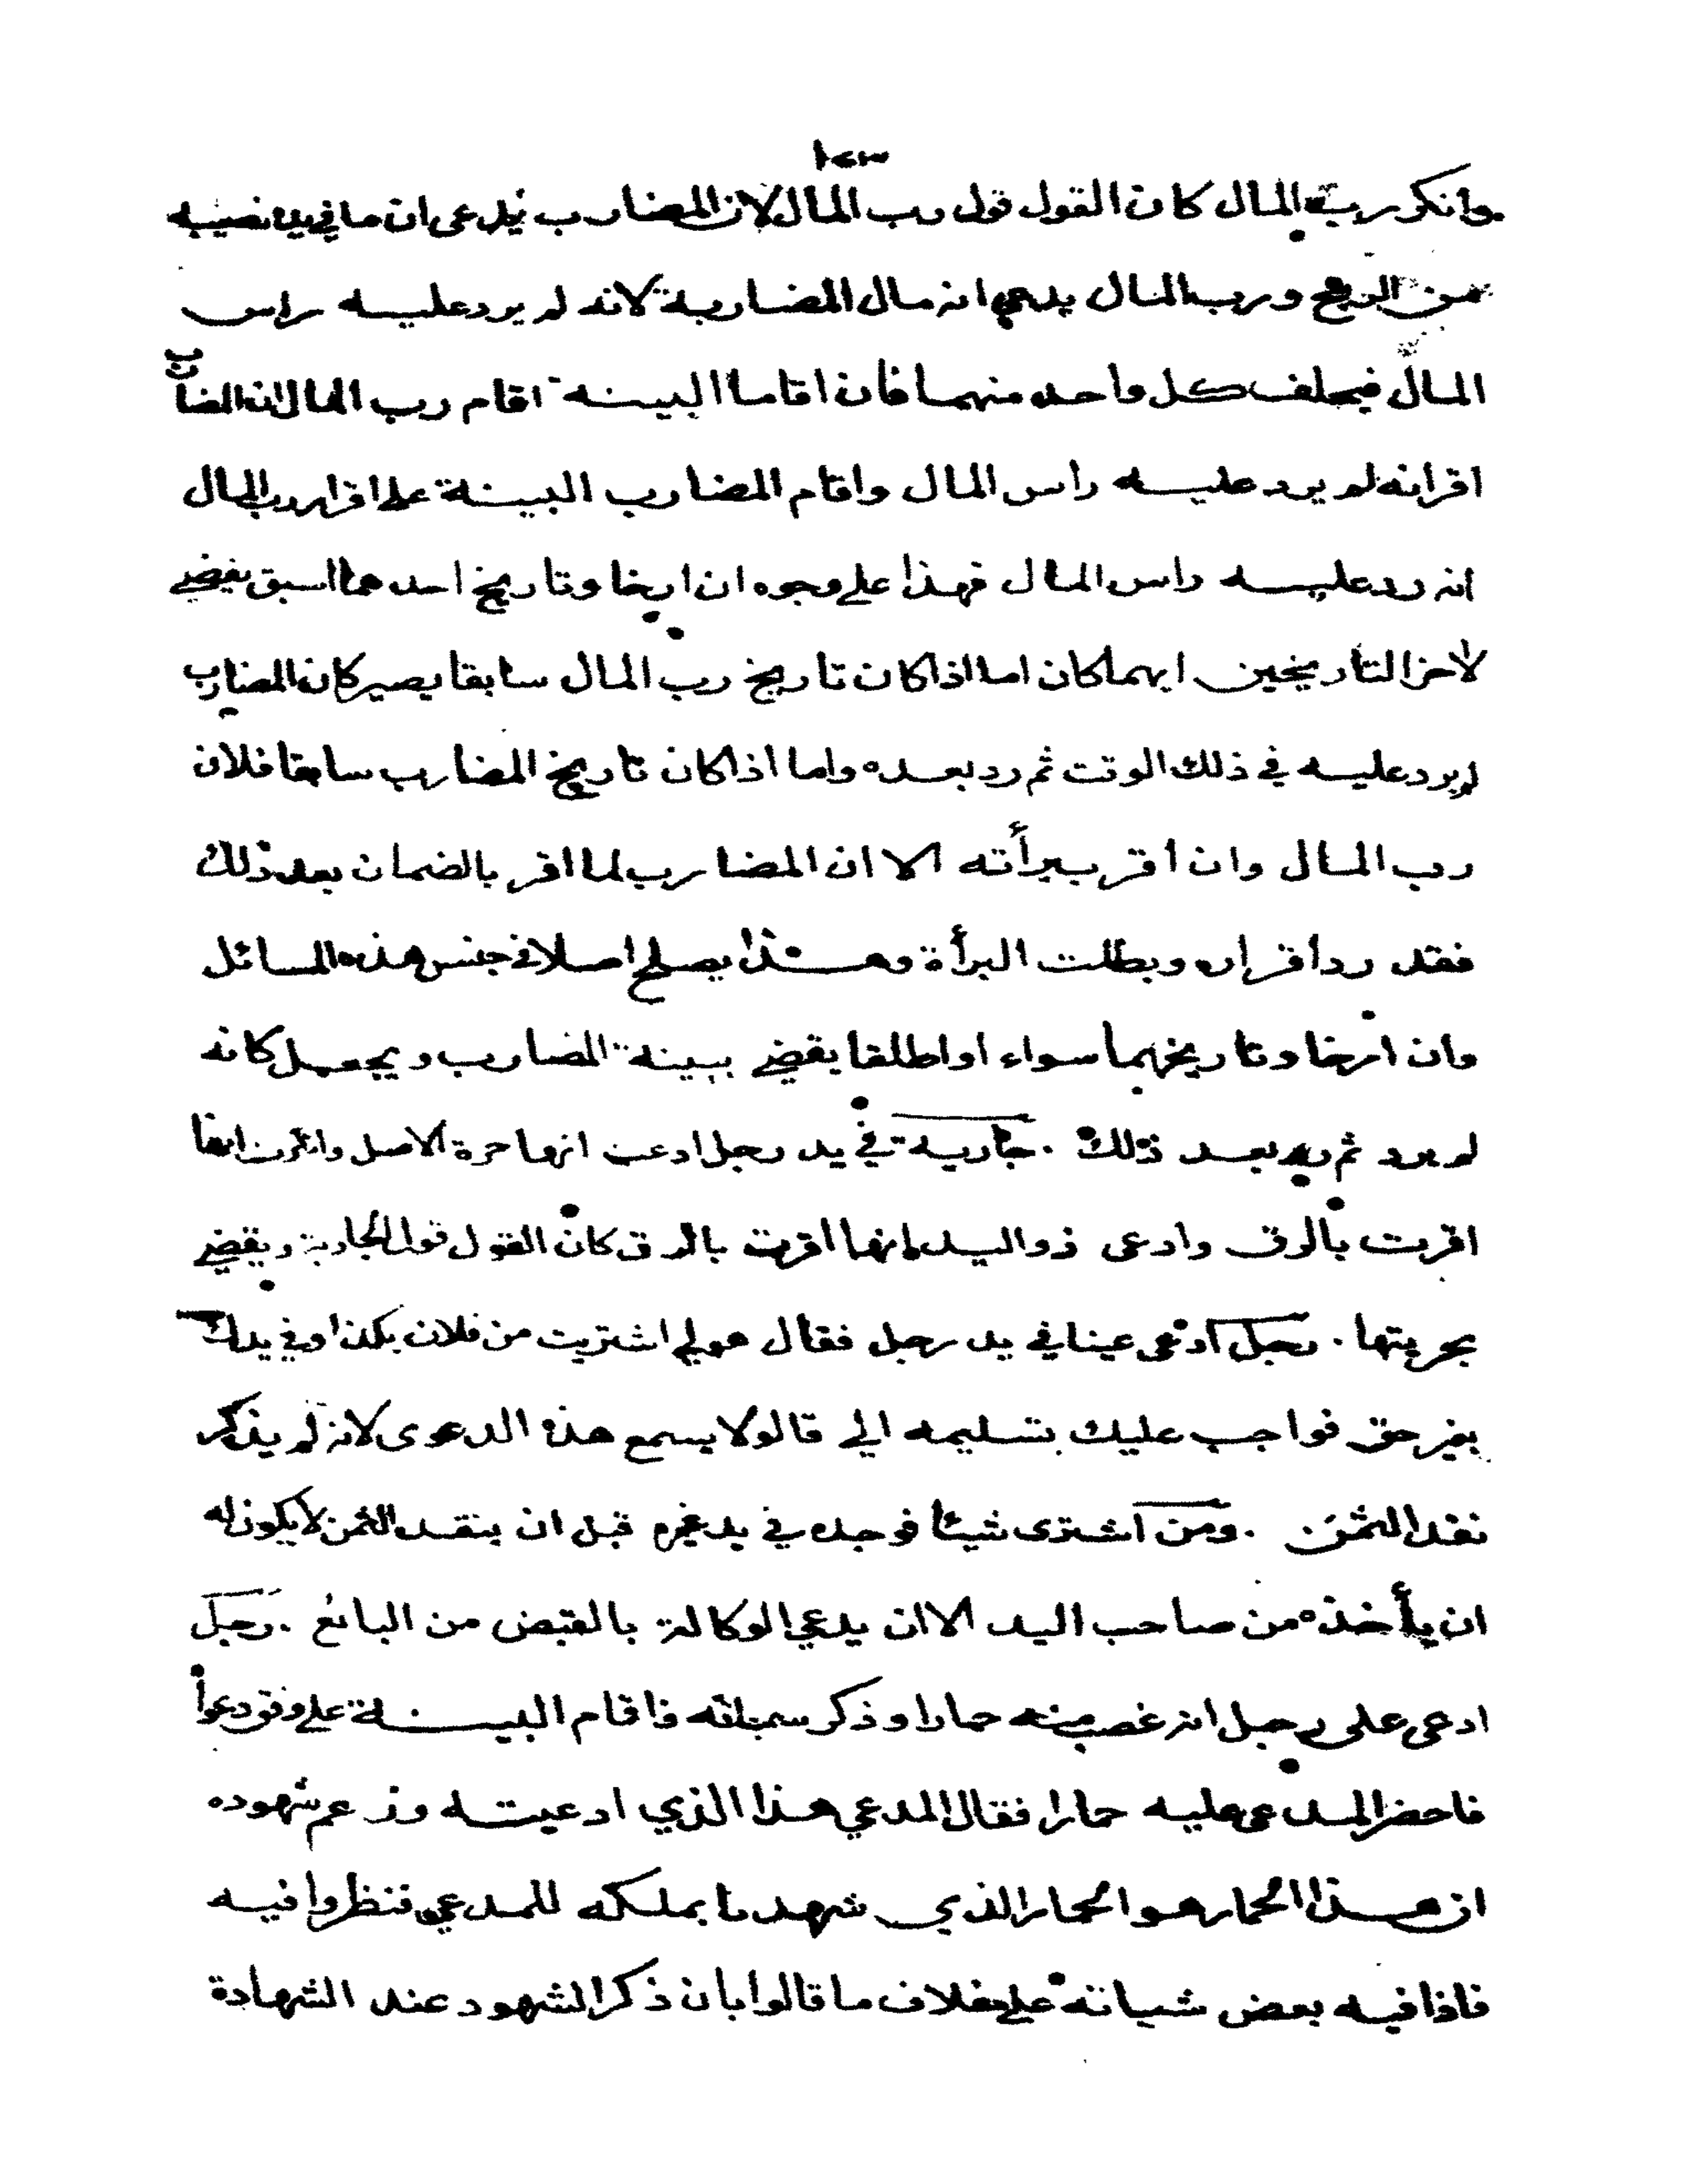 وانكر رب المال كان القول قول رب المال لان المضارب يدعى ان ما في يده نصيبه
من الربح ورب المال يدعي انه مال المضاربة لانه لم يرد عليه راس
المال فيحلف كل واحد منهما فان اقاما البينة اقام رب المال ان المضارب
اقر انه لم يرد عليه راس المال واقام المضارب البينة على اقرار رب المال
انه رد عليه راس المال فهذا على وجوه ان ارخا وتاريخ احدهما اسبق يقضي
لاخر التاريخين ايهما كان اما اذا كان تاريخ رب المال سابقا يصير كان المضارب
لم يرد عليه في ذلك الوقت ثم رد بعده واما اذا كان تاريخ المضارب سابقا فلان
رب المال وان أقر ببرأته الا ان المضارب لما اقر بالضمان بعد ذلك
فقد رد أقراره وبطلت البرأة وهذا يصلح اصلا في جنس هذه المسائل
وان ارخا وتاريخهما سواء او اطلقا يقضي ببينة المضارب ويجعل كانه
لم يرد ثم رد بعد ذلك . جارية في يد رجل ادعت انها حرة الاصل وانكرت انها
اقرت بالرق وادعى ذو اليد انها اقرت بالرق كان القول قول الجارية ويقضي
بحريتها . رجل ادعى عينا في يد رجل فقال هو لي اشتريت من فلان بكذا وفي يدك
بغير حق فواجب عليك تسليمه الي قالوا لا يسمع هذه الدعوى لانه لم يذكر
نقد الثمن . ومن اشترى شيئا فوجده في يد غيره قبل ان ينقد الثمن لا يكون له
ان يأخذه من صاحب اليد الا ان يدعي الوكالة بالقبض من البائع . رجل
ادعى على رجل انه غصب منه حمارا وذكر شياته فاقام البينة على وفق دعواه
فاحضر المدعى عليه حمارا فقال المدعي هذا الذي ادعيته وزعم شهوده
ان هذا الحمار هو الحمار الذي شهدنا بملكه للمدعي فنظروا فيه
فاذا فيه بعض شياته على خلاف ما قالوا بان ذكر الشهود عند الشهادة